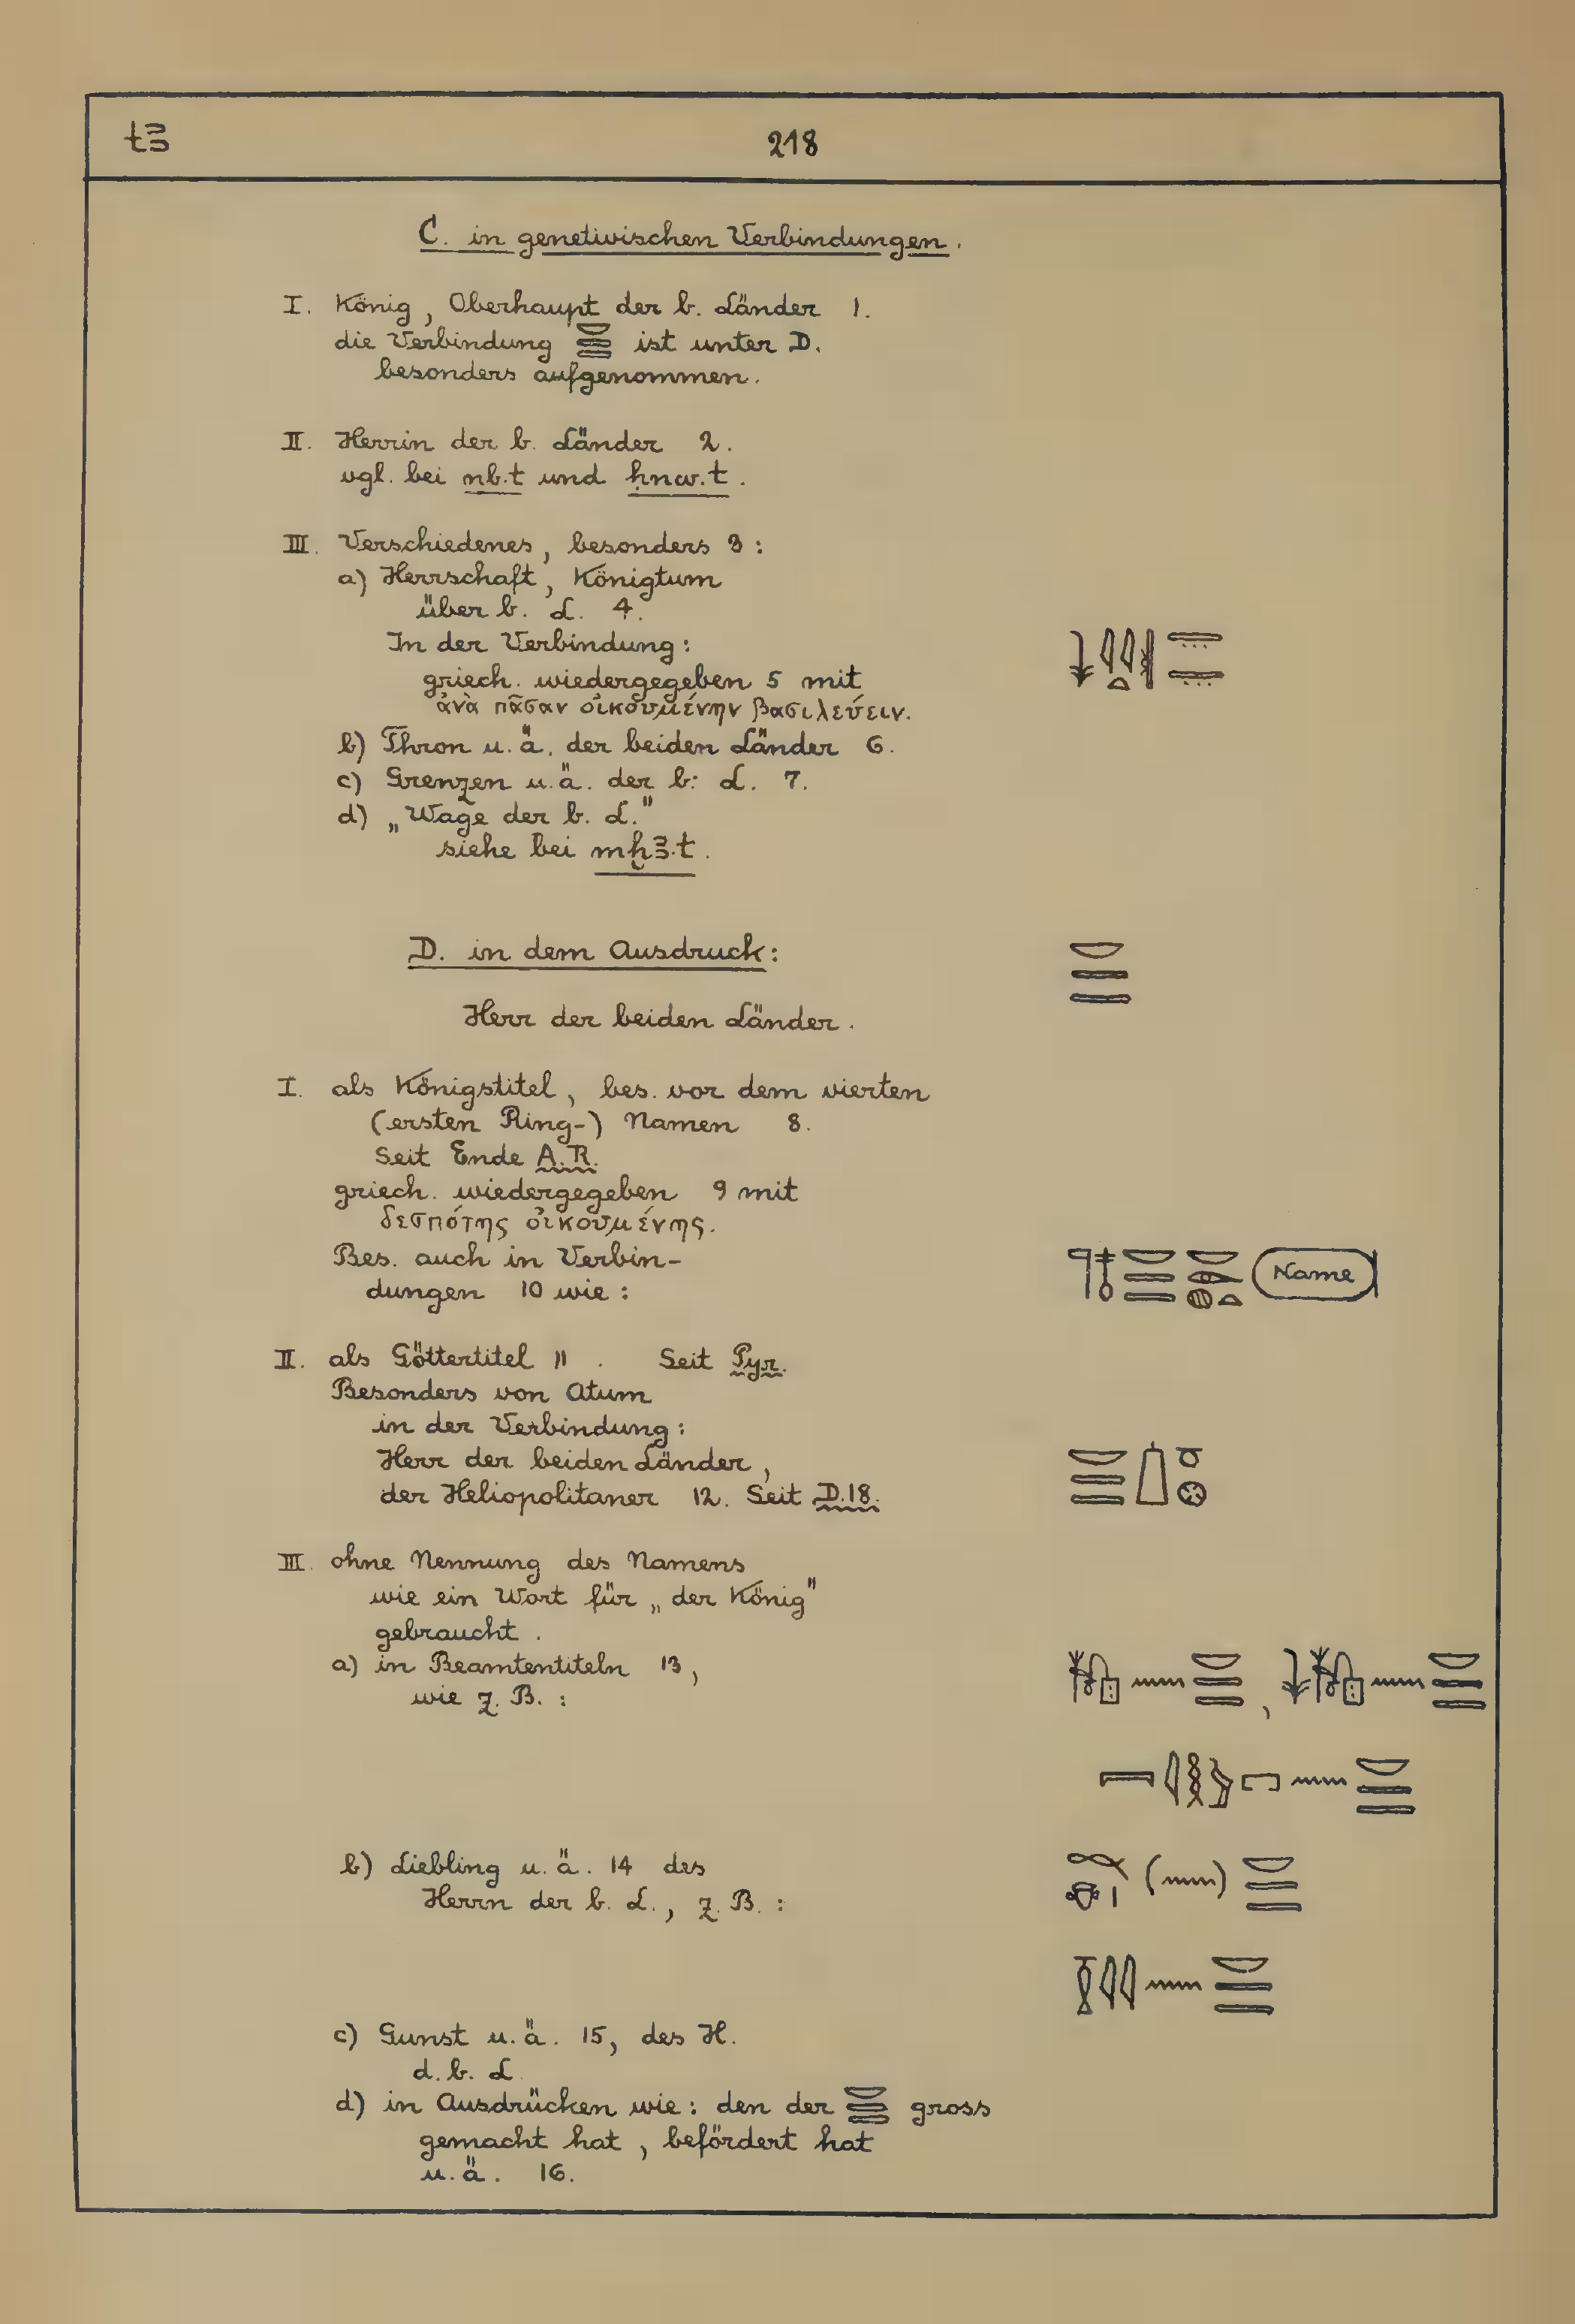 tꜣ 218
C. in genetivischen Verbindungen.
I. König, Oberhaupt der b. Länder 1.
die Verbindung 𓎟𓇿𓇿 ist unter D.
besonders aufgenommen.
II. Herrin der b. Länder 2.
vgl. bei nb.t und ḥnw.t.
III. Verschiedenes, besonders 3:
a) Herrschaft, Königtum
über b. L. 4.
In der Verbindung:
griech. wiedergegeben 5 mit
ἀνὰ πᾶσαν οἰκουμένην βασιλεύειν.
b) Thron u. ä. der beiden Länder 6.
c) Grenzen u. ä. der b. L. 7.
d) „Wage der b. L."
siehe bei mḫꜣ.t.
D. in dem Ausdruck: 𓎟𓇿𓇿
Herr der beiden Länder.
I. als Königstitel, bes. vor dem vierten
(ersten Ring-) Namen 8.
Seit Ende A.R.
griech. wiedergegeben 9 mit
δεσπότης οἰκουμένης.
Bes. auch in Verbin-
dungen 10 wie: 𓊹𓄤𓎟𓇿𓇿𓎟𓁹𓐍𓏏 Name
II. als Göttertitel 11. Seit Pyr.
Besonders von Atum
in der Verbindung:
Herr der beiden Länder,
der Heliopolitaner 12. Seit D.18. 𓎟𓇿𓇿𓉺𓏌𓊖
III. ohne Nennung des Namens
wie ein Wort für „der König"
gebraucht.
a) in Beamtentiteln 13,
wie z. B. :
b) Liebling u. ä. 14 des
Herrn der b. L., z. B. :
c) Gunst u. ä. 15, des H.
d. b. L.
d) in Ausdrücken wie: den der 𓎟𓇿𓇿 gross
gemacht hat, befördert hat
u. ä. 16.